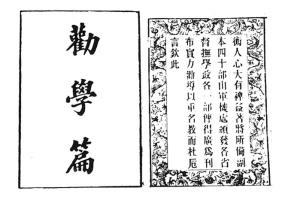 勸學篇
衞人心大有裨益著將所備副
本四十部由軍機處頒發各省
督撫學政各一部俾得廣爲刊
布實力勸導以重名教而杜卮
言欽此